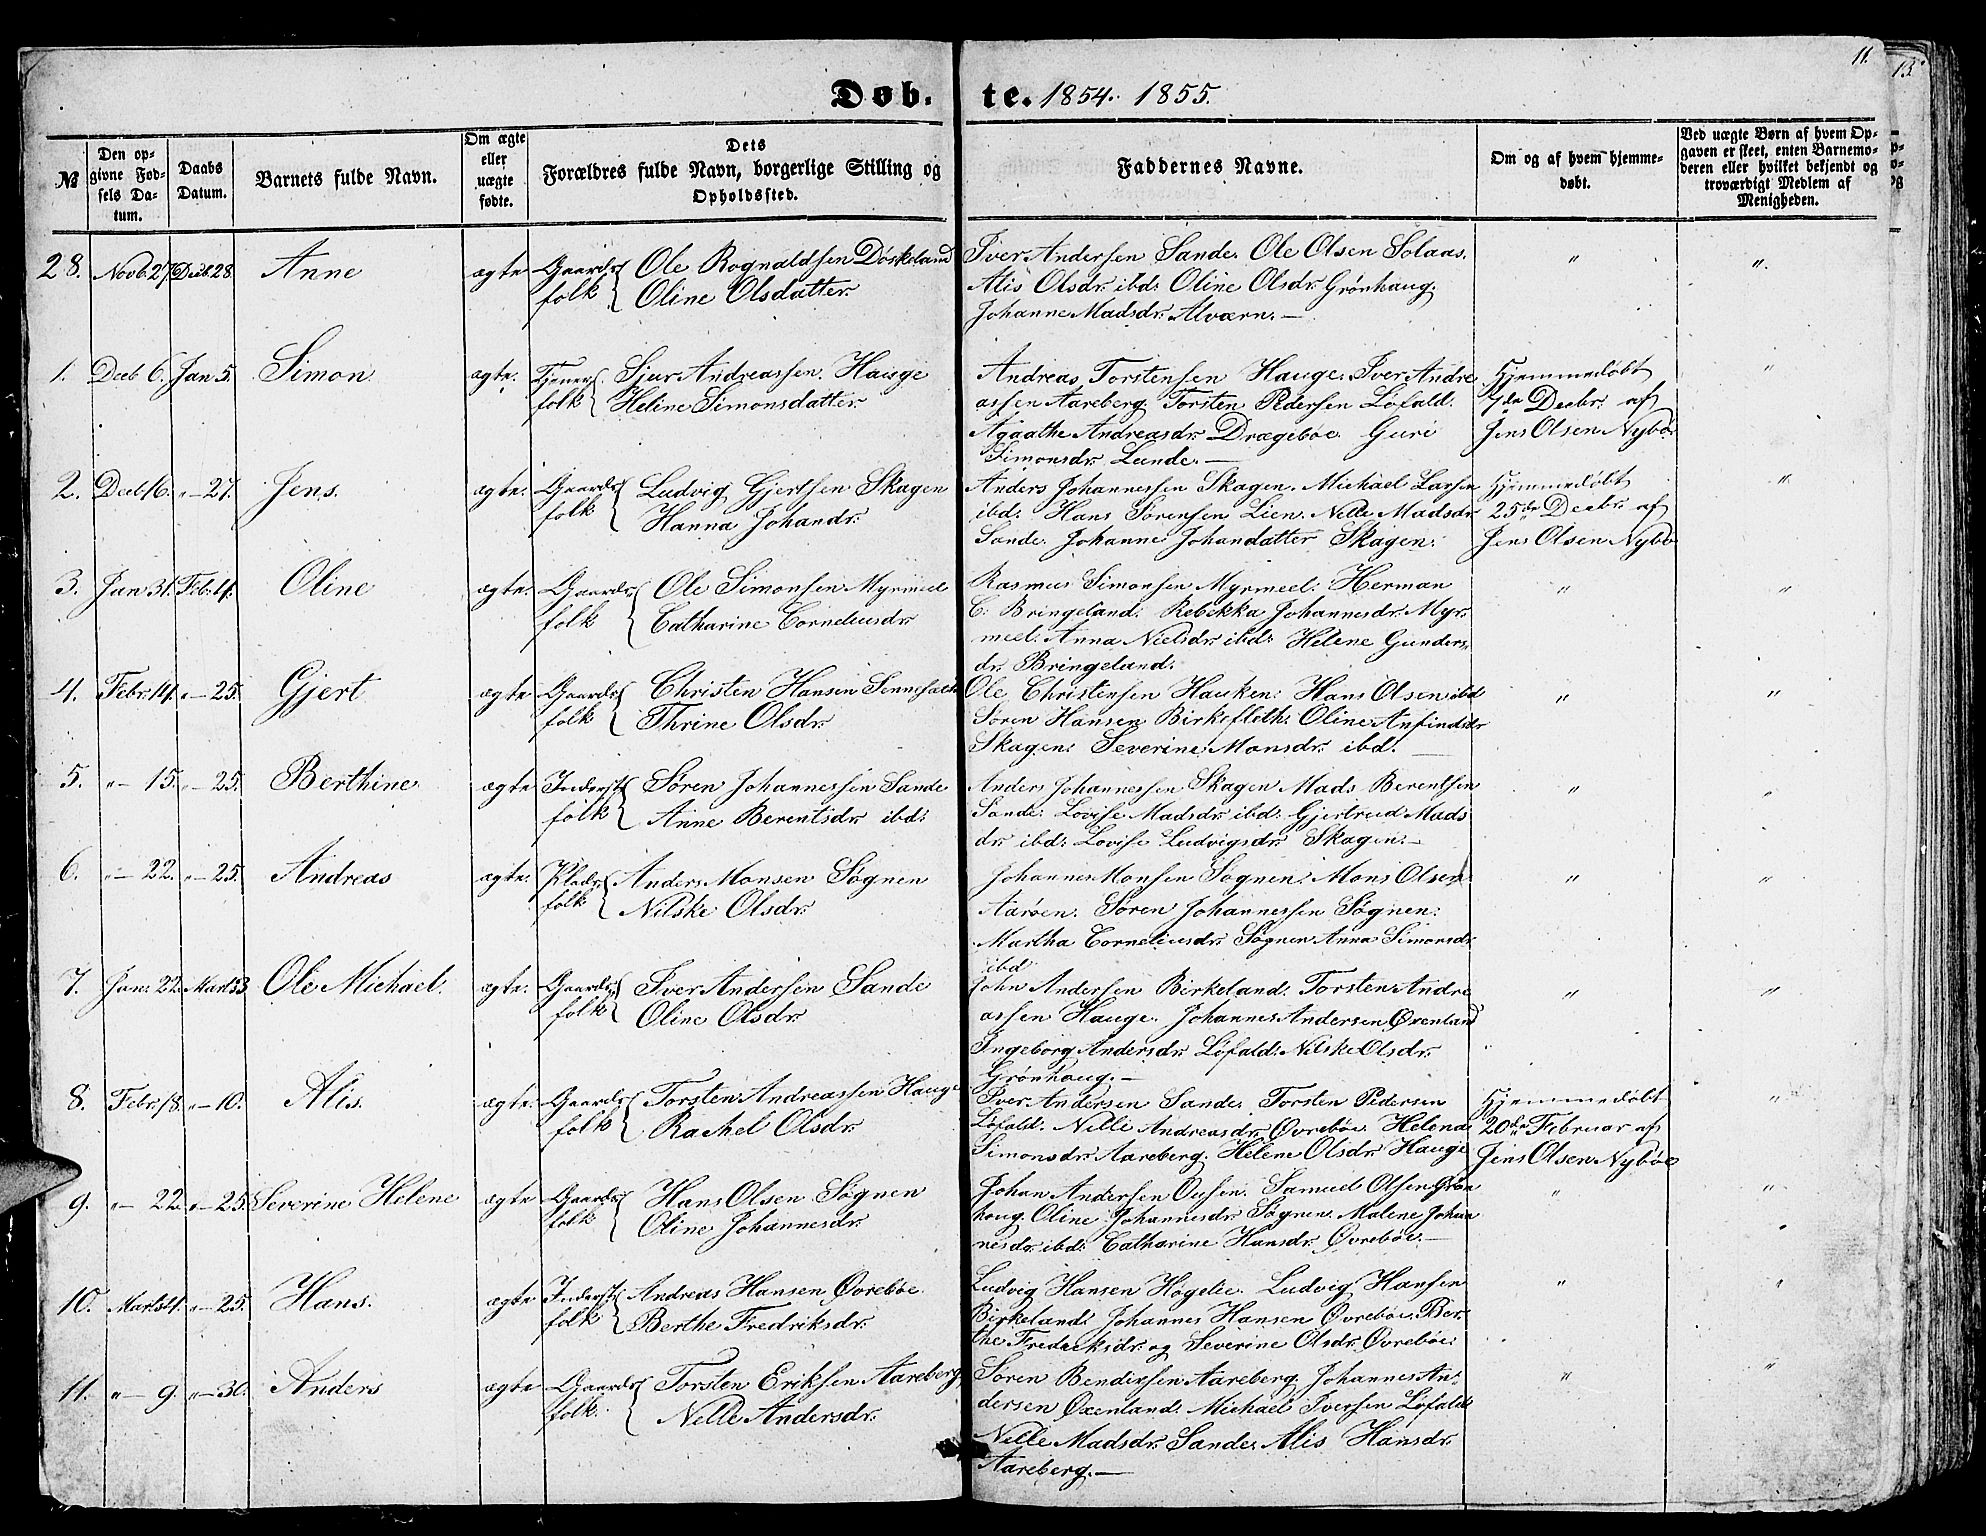 11.
13.
Døb. te. 1854. 1855.
№
Den op-
givne Fød-
sels Da-
tum.
Daabs
Datum.
Barnets fulde Navn.
Om ægte
eller
uægte
fødte.
Dets
Forældres fulde Navn, borgerlige Stilling og
Opholdssted.
Faddernes Navne.
Om og af hvem hjemme-
døbt.
Ved uægte Børn af hvem Op-
gaven er skeet, enten Barnemo-
deren eller hvilket bekjendt og
troværdigt Medlem af
Menigheden.
28. Novb. 27. Decb. 28. Anne ægte Gaard- Ole Rognaldsen Døskeland
folk Oline Olsdatter.
Iver Andersen Sande. Ole Olsen Solaas.
Alis Olsdr. ibd: Oline Olsdr. Grønhaug.
Johanne Madsdr. Alværn. —
" "
1. Decb 6. Jan 5. Simon. ægte. Tjener- Sjur Andreassen. Hauge
folk Heline Simonsdatter.
Andreas Torstensen Hauge. Iver Andre
assen Aareberg. Torsten Pedersen Løfald.
Agaathe Andreasdr. Drægebøe. Guri
Simonsdr. Lunde. —
Hjemmedøbt
7de Decbr. af
Jens Olsen Nybø.
"
2. Decb 16. "— 27. Jens. ægte. Gaard- Ludvig Gjertsen Skagen
folk Hanna Johandr.
Anders Johannessen Skagen. Michael Larsen
ibd: Hans Sørensen Lien. Nelle Madsdr.
Sande. Johanne Johandatter Skagen.
Hjemmedøbt
25de Decbr. af
Jens Olsen Nybø
"
3. Jan 31. Feb. 11. Oline ægte. Gaard- Ole Simonsen Myrmeel
folk Catharine Corneliusdr.
Rasmus Simonsen Myrmeel. Herman
C: Bringeland. Rebekka Johannesdr. Myr-
meel. Anna Nielsdr. ibd: Helene Gunders-
dr. Bringeland.
" "
4. Febr. 14. "— 25. Gjert ægte Gaard- Christen Hansen
folk Thrine Olsdr.
Ole Christensen Hauken: Hans Olsen ibd
Søren Hansen Birkefloth: Oline Anfindsdr
Skagen: Severine Monsdr. ibd. —
" "
5. "— 15. "— 25. Berthine ægte Inderst- Søren Johannessen Sande
folk Anne Berentsdr. ibd:
Anders Johannessen Skagen. Mads Berentsen
Sande: Lovise Madsdr. ibd: Gjertrud Mads
dr. ibd: Lovise Ludvigsdr. Skagen. —
" "
6. "— 22. "— 25. Andreas ægte. Plads- Anders Monsen Søgnen
folk Nilske Olsdr.
Johannes Monsen Søgnen: Mons Olsen
Aarøen. Søren Johannessen Søgnen:
Martha Corneliusdr. Søgnen. Anna Simonsdr.
ibd
" "
7. Jan: 22. Marts 3. Ole Michael. ægte. Gaard- Iver Andersen Sande
folk Oline Olsdr.
John Andersen Birkeland. Torsten Andre
assen Hauge. Johannes Andersen Øxenland
Ingeborg Andersdr. Løfald: Nilske Olsdr.
Grønhaug. —
" "
8. Febr. 18. "— 10. Alis. ægte. Gaard- Torsten Andreassen Hauge
folk Rachel Olsdr.
Iver Andersen Sande. Torsten Pedersen
Løfald. Nilli Andreasdr. Øvrebøe. Helena
Simonsdr. Aareberg. Helene Olsdr. Hauge
Hjemmedøbt
20de Februar af
Jens Olsen Nybøe
"
9. "— 22. "— 25. Severine Helene ægte Gaard- Hans Olsen Søgnen
folk Oline Johannesdr.
Johan Andersen Ousen. Samuel Olsen Grøn
haug. Oline Johannesdr. Søgnen. Malene Johan
nesdr. ibd: Catharine Hansdr. Øvrebøe. —
" "
10. Marts 4. "— 25. Hans. ægte Inderst- Andreas Hansen Øvrebøe
folk Berthe Fredriksdr.
Ludvig Hansen Høgelie. Ludvig Hansen
Birkeland. Johannes Hansen Øvrebøe. Ber-
the Fredricksdr. og Severine Olsdr. Øvrebøe:
" "
11. "— 9. "— 30. Anders ægte Gaard- Torsten Eriksen Aareberg
folk. Nelle Andersdr.
Søren Bendixsen Aareberg. Johannes An-
dersen Øxenland. Michael Iversen Løfald
Nelle Madsdr. Sande. Alis Hansdr.
Aareberg. —
" "